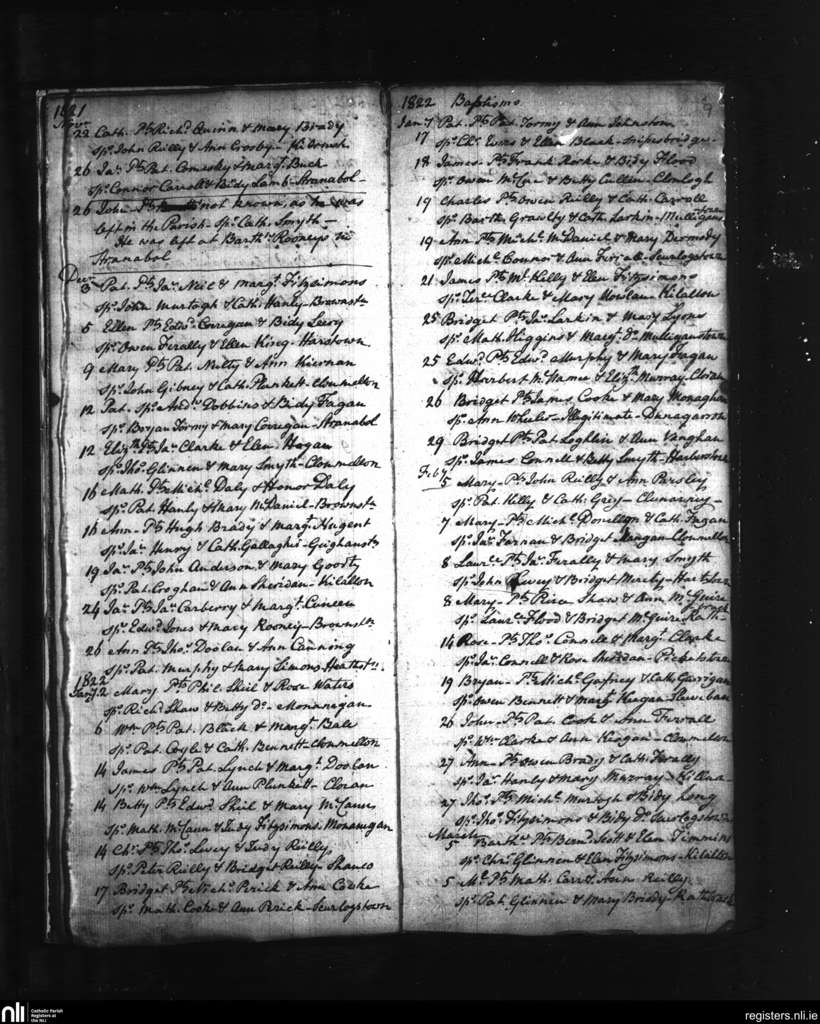 1821
Novr
22 Cath. Pts Richd Quinn & Mary Brady
Sps John Reilly & Ann Crosby - Kilrush
26 Jas Pts Pat. Comesky & Margt Buck
Sps Connor Carroll & Bidy Lamb - Stranabol -
26 John Pts not known, as he was
left in the Parish - Sps Cath. Smyth -
He was left at Barthw Rooney's in
Stranabol
Decr
3 Pat. Pts Jas Neil & Margt Fitzsimons
Sps John Murtagh & Cath. Hanly - Brownstn
5 Ellen Pts Edwd Corregan & Bidy Leery
Sps Owen Ferally & Ellen King - Haretown
9 Mary Pts Pat. Nulty & Ann Kiernan
Sps John Gibney & Cath. Plunkett - Clonmellon
12 Pat - Sps Andw Dobbins & Bidy Fagan
Sps Bryan Tormy & Mary Corregan - Stranabol
12 Elizth Pts Jas Clarke & Elen Hogan
Sps Thos Glinnen & Mary Smyth - Clonmellon
16 Math. Pts Michl Daly & Honor Daly
Sps Pat. Hanly & Mary McDaniel - Brownstn
16 Ann - Pts Hugh Brady & Margt Nugent
Sps Jas Henry & Cath. Gallagher - Geighanstn
19 Jas Pts John Anderson & Mary Goodty
Sps Pat. Croghan & Ann Sheridan - Kilallon
24 Jas Pts Jas Carberry & Margt Cuneen
Sps Edwd Jones & Mary Rooney - Brownstn
26 Ann Pts Thos Doolan & Ann Canning
Sps Pat. Murphy & Mary Simons Heathstn
1822
Jany 2 Mary Pts Phil. Shiel & Rose Waters
Sps Richd Shaw & Betty Do - Monanegan
6 Wm Pts Pat. Black & Margt Bale
Sps Pat. Coyle & Cath. Bennett - Clonmellon
14 James Pts Pat. Lynch & Margt Doolan
Sps Wm Lynch & Ann Plunkett - Cloran
14 Betty Pts Edwd Shiel & Mary McCann
Sps Math. McCann & Judy Fitzsimons. Monanegan
14 Chr Pts Thos Lucy & Judy Reilly
Sps Peter Reilly & Bridget Reilly - Shanco
17 Bridget Pts Michl Perick & Ann Cooke
Sps Math. Cooke & Ann Perick - Scurlogstown
1822 Baptisms
Jany Pat. Pts Pat. Tormy & Ann Johnston
17 Sps Chr Evers & Ellen Black - Snipesbridge -
18 James - Pts Frank Rorke & Bidy Flood
Sps Owen McCue & Betty Cullen - Clonlogh
19 Charles Pts Owen Reilly & Cath. Carroll
Sps Barthw Growlby & Cath. Larkin - Mulliganstown
19 Ann Pts Michl McDaniel & Mary Dermody
Sps Michl Connor & Ann Ferrall - Scurlogstown
21 James Pts Mt Kelly & Elen Fitzsimons
Sps Terce Clarke & Mary Nowlan - Kilallon
25 Bridget Pts Jas Larkin & Mary Lyons
Sps Math. Higgins & Margt Do Mulliganstown
25 Edwd Pts Edwd Murphy & Mary Fagan
Sps Herbert McNamee & Elizth Murray - Cloran
26 Bridget Pts James Cooke & Mary Monaghan
Sps Ann Wheeler - Illegitimate - Dunagorroth
29 Bridget Pts Pat. Loghlin & Ann Vaughan
Sps James Connell & Betty Smyth - Harlockstown
Feby
5 Mary - Pts John Reilly & Ann Parsley
Sps Pat. Kelly & Cath. Grey -
7 Mary - Pts Michl Ronellon & Cath. Fagan
Sps Jas Farnan & Bridget Mangan - Clonmellon
8 Laurce Pts Jas Ferally & Mary Smyth
Sps John Lucey & Bridget Merly - Haretown
8 Mary - Pts Pierce Shaw & Ann McGuire
Sps Laurce Flood & Bridget McGuire Rath-
14 Rose - Pts Thos Connell & Margt Clarke
Sps Jas Connell & Rose Sheridan - Picketstown
19 Bryan - Pts Michl Gaffney & Cath. Garrigan
Sps Owen Bennett & Margt Keegan -
26 John - Pts Pat. Cook & Ann Ferrall
Sps Wm Clarke & Ann Keegan - Clonmellon
27 Ann - Pts Owen Brady & Cath. Ferally
Sps Jas Hanly & Mary Murray - Killua -
27 Thos Pts Michl Murtogh & Bidy Long
Sps Thos Fitzsimons & Bidy Do Scurlogstown
March
5 Barthw Pts Bernd Scott & Elen Timmins
Sps Chr Glinnen & Elen Fitzsimons - Kilallon
5 Mt Pts Math. Carr & Ann Reilly
Sps Pat. Glinnen & Mary Briody -
nli
Catholic Parish
Registers at
the NLI
registers.nli.ie